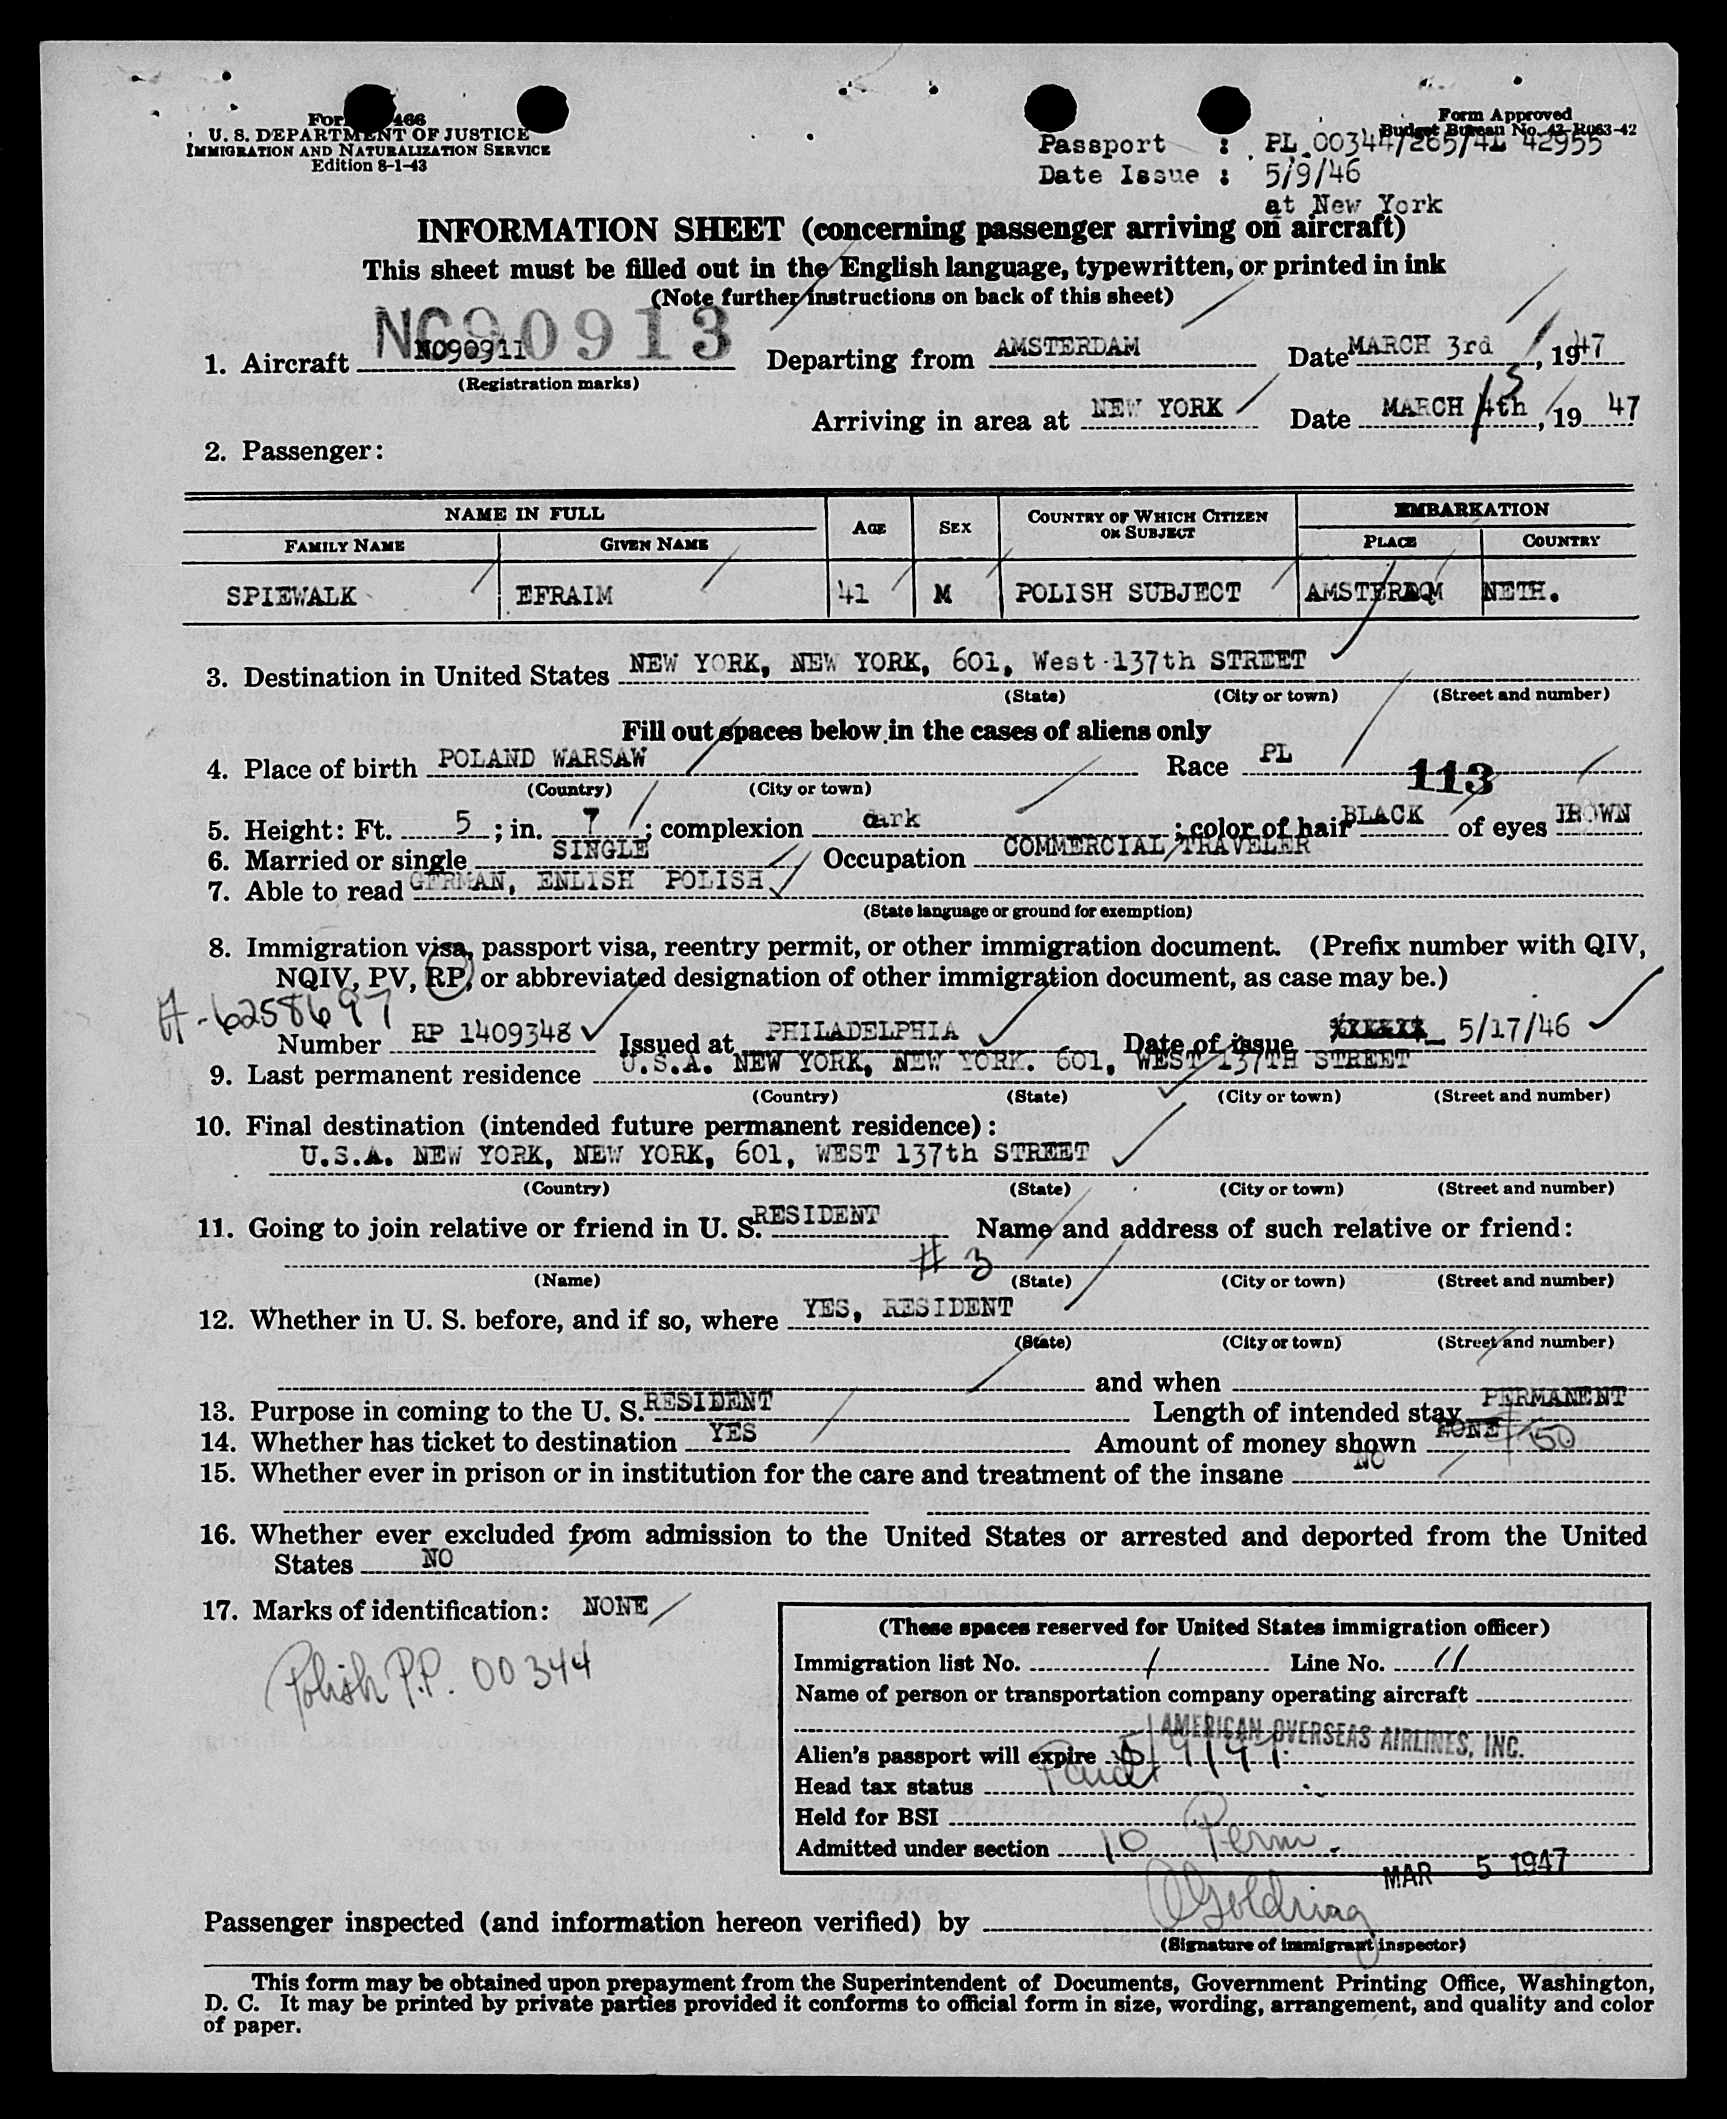 Form 466
U. S. DEPARTMENT OF JUSTICE
IMMIGRATION AND NATURALIZATION SERVICE
Edition 8-1-43
Form Approved
Budget Bureau No. 43-R063-42
Passport : PL.00344/265/4L 42955
Date Issue : 5/9/46
at New York
INFORMATION SHEET (concerning passenger arriving on aircraft)
This sheet must be filled out in the English language, typewritten, or printed in ink
(Note further instructions on back of this sheet)
NC90913
1. Aircraft NC90911 Departing from AMSTERDAM Date MARCH 3rd, 1947
(Registration marks)
Arriving in area at NEW YORK Date MARCH 4th 5, 19 47
2. Passenger:
NAME IN FULL AGE SEX COUNTRY OF WHICH CITIZEN OR SUBJECT EMBARKATION
FAMILY NAME GIVEN NAME PLACE COUNTRY
SPIEWALK EFRAIM 41 M POLISH SUBJECT AMSTERDAM NETH.
3. Destination in United States NEW YORK, NEW YORK, 601, West 137th STREET
(State) (City or town) (Street and number)
Fill out spaces below in the cases of aliens only
4. Place of birth POLAND WARSAW Race PL
(Country) (City or town) 113
5. Height: Ft. 5; in. 7; complexion dark; color of hair BLACK of eyes BROWN
6. Married or single SINGLE Occupation COMMERCIAL TRAVELER
7. Able to read GERMAN, ENLISH POLISH
(State language or ground for exemption)
8. Immigration visa, passport visa, reentry permit, or other immigration document. (Prefix number with QIV,
NQIV, PV, RP, or abbreviated designation of other immigration document, as case may be.)
A-6258697
Number RP 1409348 Issued at PHILADELPHIA Date of issue 5/17/46
9. Last permanent residence U.S.A. NEW YORK, NEW YORK. 601, WEST 137TH STREET
(Country) (State) (City or town) (Street and number)
10. Final destination (intended future permanent residence):
U.S.A. NEW YORK, NEW YORK, 601, WEST 137th STREET
(Country) (State) (City or town) (Street and number)
11. Going to join relative or friend in U. S. RESIDENT Name and address of such relative or friend:
# 3
(Name) (State) (City or town) (Street and number)
12. Whether in U. S. before, and if so, where YES, RESIDENT
(State) (City or town) (Street and number)
and when
13. Purpose in coming to the U. S. RESIDENT Length of intended stay PERMANENT
14. Whether has ticket to destination YES Amount of money shown NONE $50
15. Whether ever in prison or in institution for the care and treatment of the insane NO
16. Whether ever excluded from admission to the United States or arrested and deported from the United
States NO
17. Marks of identification: NONE
Polish P.P. 00344
(These spaces reserved for United States immigration officer)
Immigration list No. 1 Line No. 11
Name of person or transportation company operating aircraft
AMERICAN OVERSEAS AIRLINES, INC.
Alien's passport will expire 5/9/47
Head tax status Paid
Held for BSI
Admitted under section 10 Perm.
MAR 5 1947
Passenger inspected (and information hereon verified) by Goldring
(Signature of immigrant inspector)
This form may be obtained upon prepayment from the Superintendent of Documents, Government Printing Office, Washington,
D. C. It may be printed by private parties provided it conforms to official form in size, wording, arrangement, and quality and color
of paper.